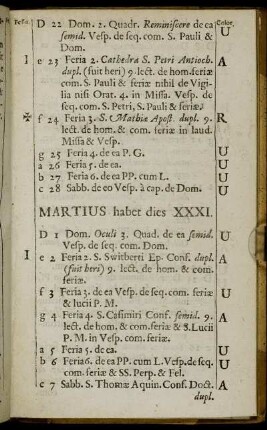 Festa. Color.
D 22 Dom. 2. Quadr. Reminiscere de ea U
semid. Vesp. de seq. com. S. Pauli &
Dom.
I e 23 Feria 2. Cathedra S. Petri Antioch. A
dupl. (fuit heri) 9. lect. de hom. feriæ
com. S. Pauli & feriæ nihil de Vigi-
lia nisi Orat. 4. in Missa. Vesp. de
seq. com. S. Petri, S. Pauli & feriæ.
✠ f 24 Feria 3. S. Mathiæ Apost. dupl. 9. R
lect. de hom. & com. feriæ in laud.
Missa & Vesp.
g 25 Feria 4. de ea P. G. U
a 26 Feria 5. de ea. U
b 27 Feria 6. de ea PP. cum L. U
c 28 Sabb. de eo Vesp. à cap. de Dom. U
MARTIUS habet dies XXXI.
D 1 Dom. Oculi 3. Quad. de ea semid. U
Vesp. de seq. com. Dom.
I e 2 Feria 2. S. Switberti Ep. Conf. dupl. A
(fuit heri) 9. lect. de hom. & com.
feriæ.
f 3 Feria 3. de ea Vesp. de seq. com. feriæ U
& Lucii P. M.
g 4 Feria 4. S. Casimiri Conf. semid. 9. A
lect. de hom. & com. feriæ & S. Lucii
P. M. in Vesp. com. feriæ.
a 5 Feria 5. de ea. U
b 6 Feria 6. de ea PP. cum L. Vesp. de seq. U
com. feriæ & SS. Perp. & Fel.
c 7 Sabb. S. Thomæ Aquin. Conf. Doct. A
dupl.